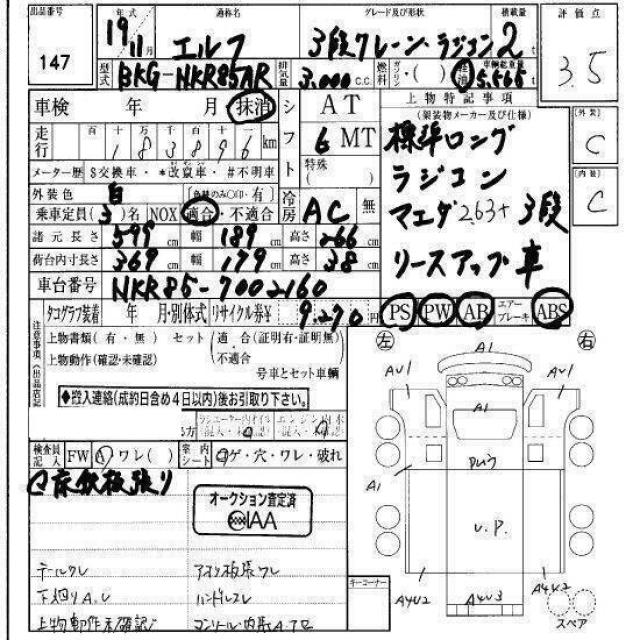 出品番号 年式 通称名 グレード及び形状 積載量 評価点
147 19年 11月 エルフ 3段クレーン・ラジコン 2t 3.5
型式 BKG-NKR85AR 排気量 3,000 c.c. 燃料 ガソリン・( ) 軽油 車輌総重量 5,565 t
車検 年 月 抹消 シフト AT 上物特記事項 [外装]
(架装物メーカー及び仕様) C
走行 百 十 万 千 百 十 km 6 MT 標準ロング
183896 特殊( ) ラジコン [内装]
メーター歴 $交換車・*改竄車・#不明車 C
外装色 白 [色替のみ○印・有] 冷房 AC 無 マエダ 2.63t 3段
乗車定員(3)名 NOX 適合・不適合
諸元長さ 599cm 幅 189cm 高さ 266cm リースアップ車
荷台内寸長さ 369cm 幅 179cm 高さ 38cm
車台番号 NKR85-7002160
タコグラフ装着 年 月・別体式 リサイクル券¥ 9,270円 PS PW AB エアーブレーキ ABS
注意事項(出品店記
上物書類(有・無) セット 適合(証明有・証明無) 左 右
上物動作(確認・未確認) 不適合
号車とセット車輌
◆搬入連絡(成約日含め4日以内)後お引取り下さい。
A1
AU1 AV1
A1
検査員記入 FW A ワレ( ) 室内シート コゲ・穴・ワレ・破れ
C床鉄板張り
A1
オークション査定済
IAA
U.P.
テールワレ
キーコーナー
A4U2 A4U3 A4U2
スペア